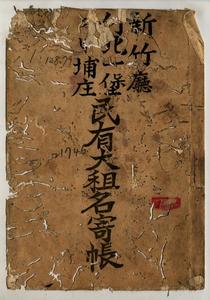 新竹廳
竹北一堡
埔庄
民有大租名寄帳
1746